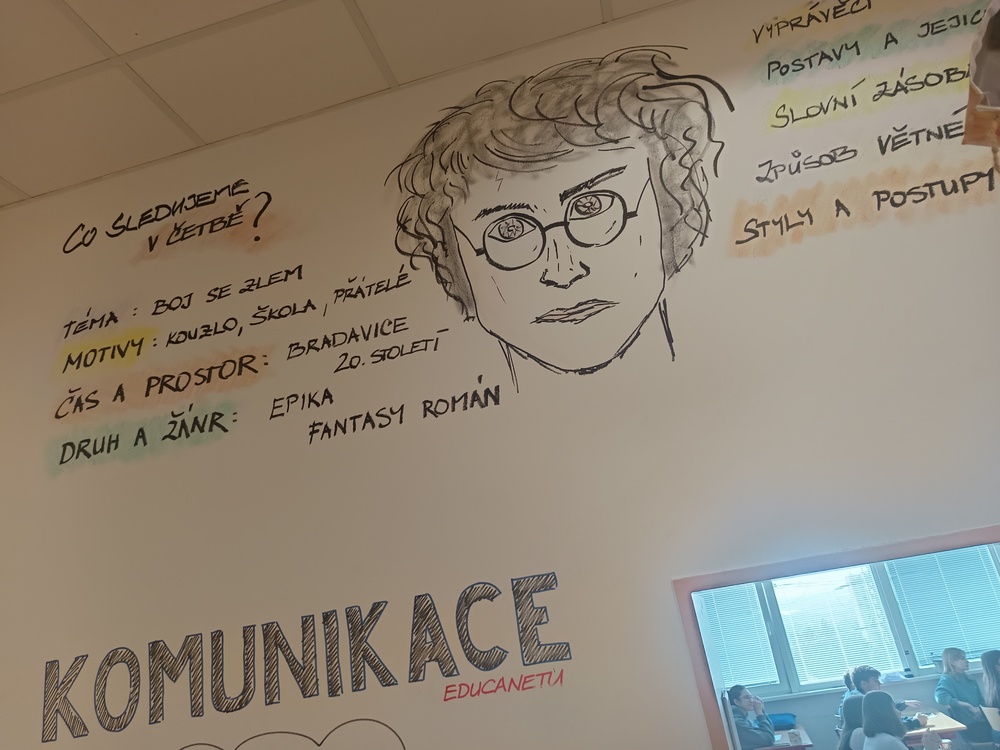 CO SLEDUJEME
V ČETBĚ?
TÉMA : BOJ SE ZLEM
MOTIVY : KOUZLO, ŠKOLA, PŘÁTELÉ
ČAS A PROSTOR: BRADAVICE
20. STOLETÍ
DRUH A ŽÁNR: EPIKA
FANTASY ROMÁN
VYPRÁVĚČI
POSTAVY A JEJIC
SLOVNÍ ZÁSOB
ZPŮSOB VĚTNÉ
STYLY A POSTUPY
KOMUNIKACE
EDUCANETU